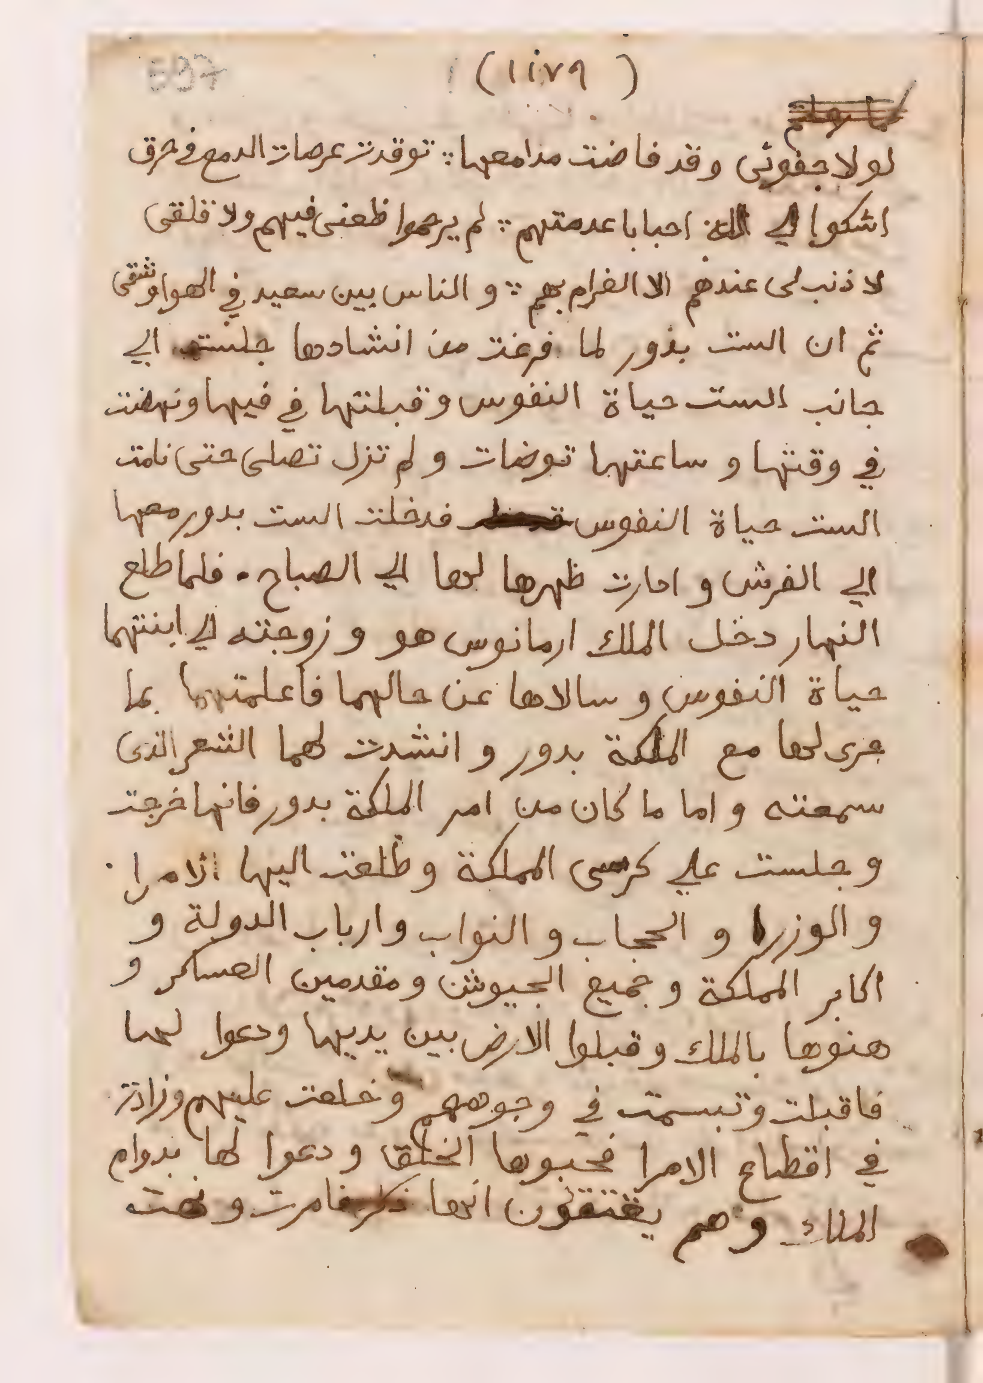 597
(١١٧٩)
لولا جفونى وقد فاضت مدامعها ؞ توقدت عرصات الدمع فى حرق
اشكوا الي الله احبابا عدمتهم ؞ لم يرحموا ظعنى فيهم ولا قلقى
لا ذنب لى عندهم الا الغرام بهم ؞ والناس بين سعيد في الهوا وشقى
ثم ان الست بدور لما فرغت من انشادها جلست الي
جانب الست حياة النفوس وقبلتها في فيها ونهضت
في وقتها وساعتها توضات ولم تزل تصلى حتى نامت
الست حياة النفوس فدخلت الست بدور معها
الي الفرش وادارت ظهرها لها الي الصباح . فلما طلع
النهار دخل الملك ارمانوس هو وزوجته الي ابنتهما
حياة النفوس وسالاها عن حالهما فاعلمتهما بما
جرى لها مع الملكة بدور وانشدت لهما الشعر الذى
سمعته واما ما كان من امر الملكة بدور فانها خرجت
وجلست علي كرسى المملكة وطلعت اليها الامرا
والوزرا والحجاب والنواب وارباب الدولة و
اكابر المملكة وجميع الجيوش ومقدمين العساكر و
هنوها بالملك وقبلوا الارض بين يديها ودعوا لها
فاقبلت وتبسمت في وجوههم وخلعت عليهم وزادت
في اقطاع الامرا فحبوها الخلق ودعوا لها بدوام
الملك وهم يعتقدون انها ذكر فامرت ونهت